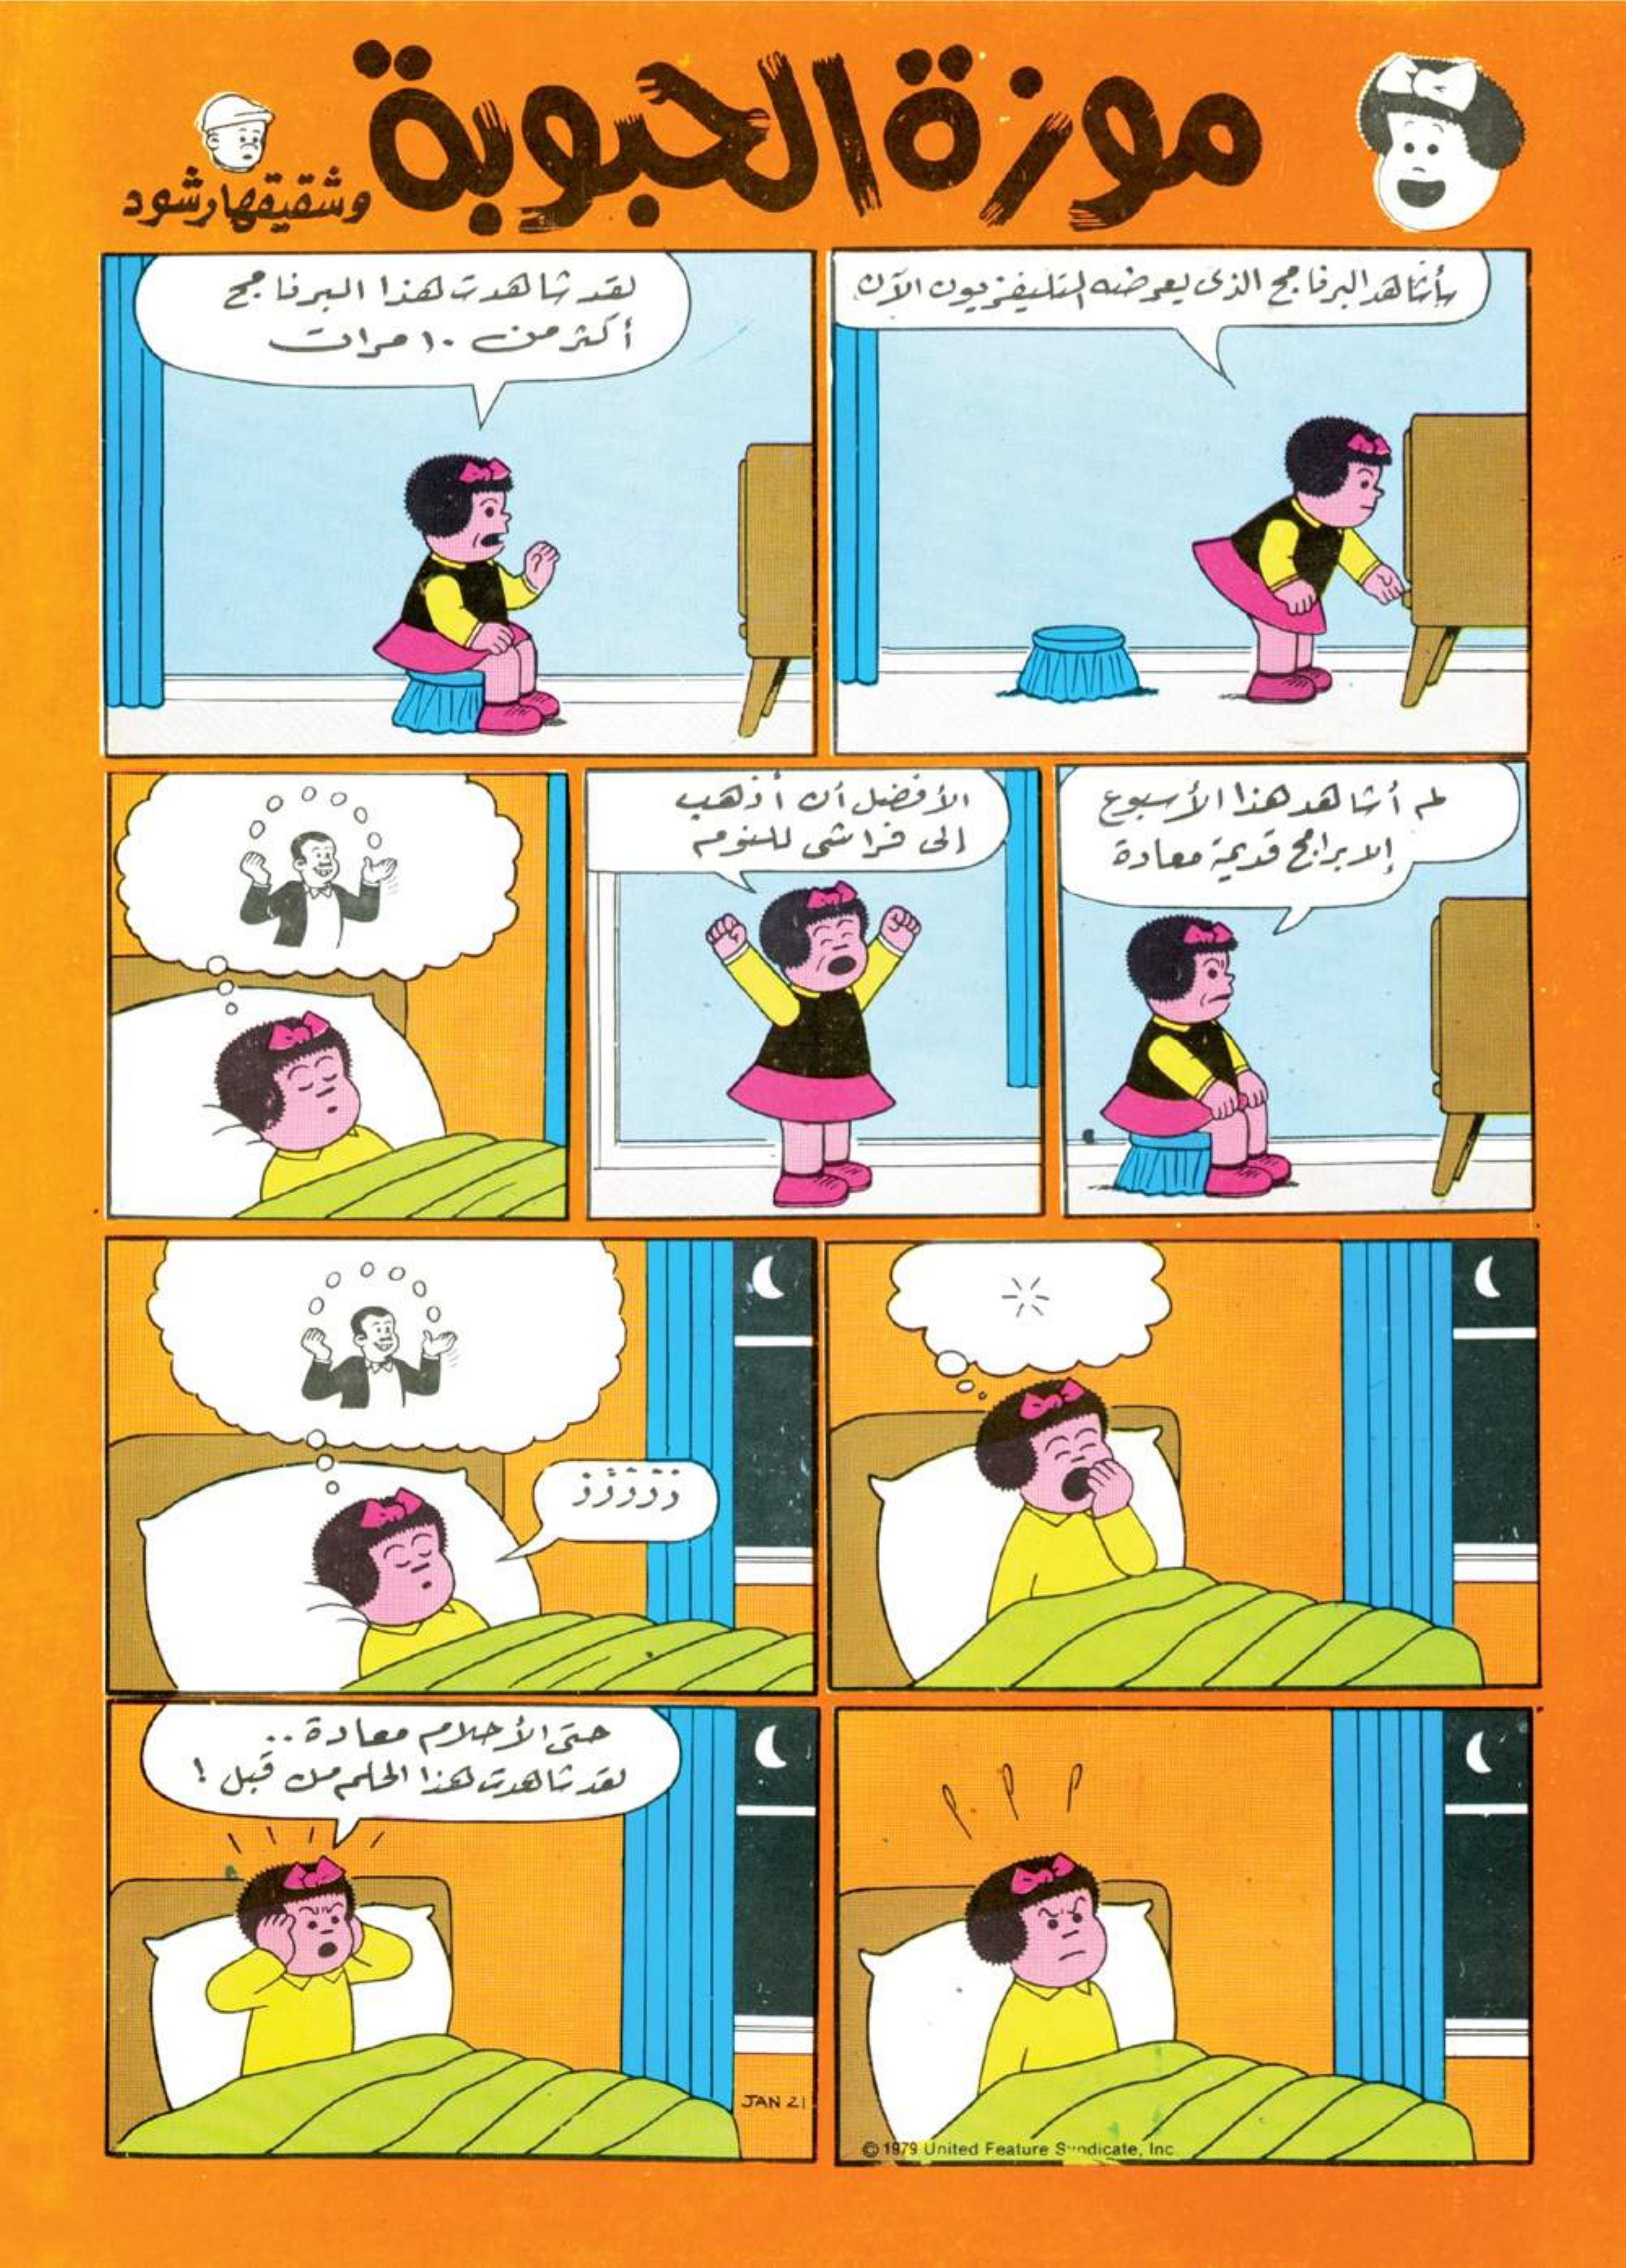 موزة الحبوبة
وشقيقها رشود
سأشاهد البرنامج الذى يعرضه التليفزيون الآن
لقد شاهدت هذا البرنامج
أكثر من ١٠ مرات
لم أشاهد هذا الأسبوع
إلا برامج قديمة معادة
الأفضل أن أذهب
إلى فراشى للنوم
ززززز
حتى الأحلام معادة ..
لقد شاهدت هذا الحلم من قبل !
© 1979 United Feature Syndicate, Inc.
JAN 21